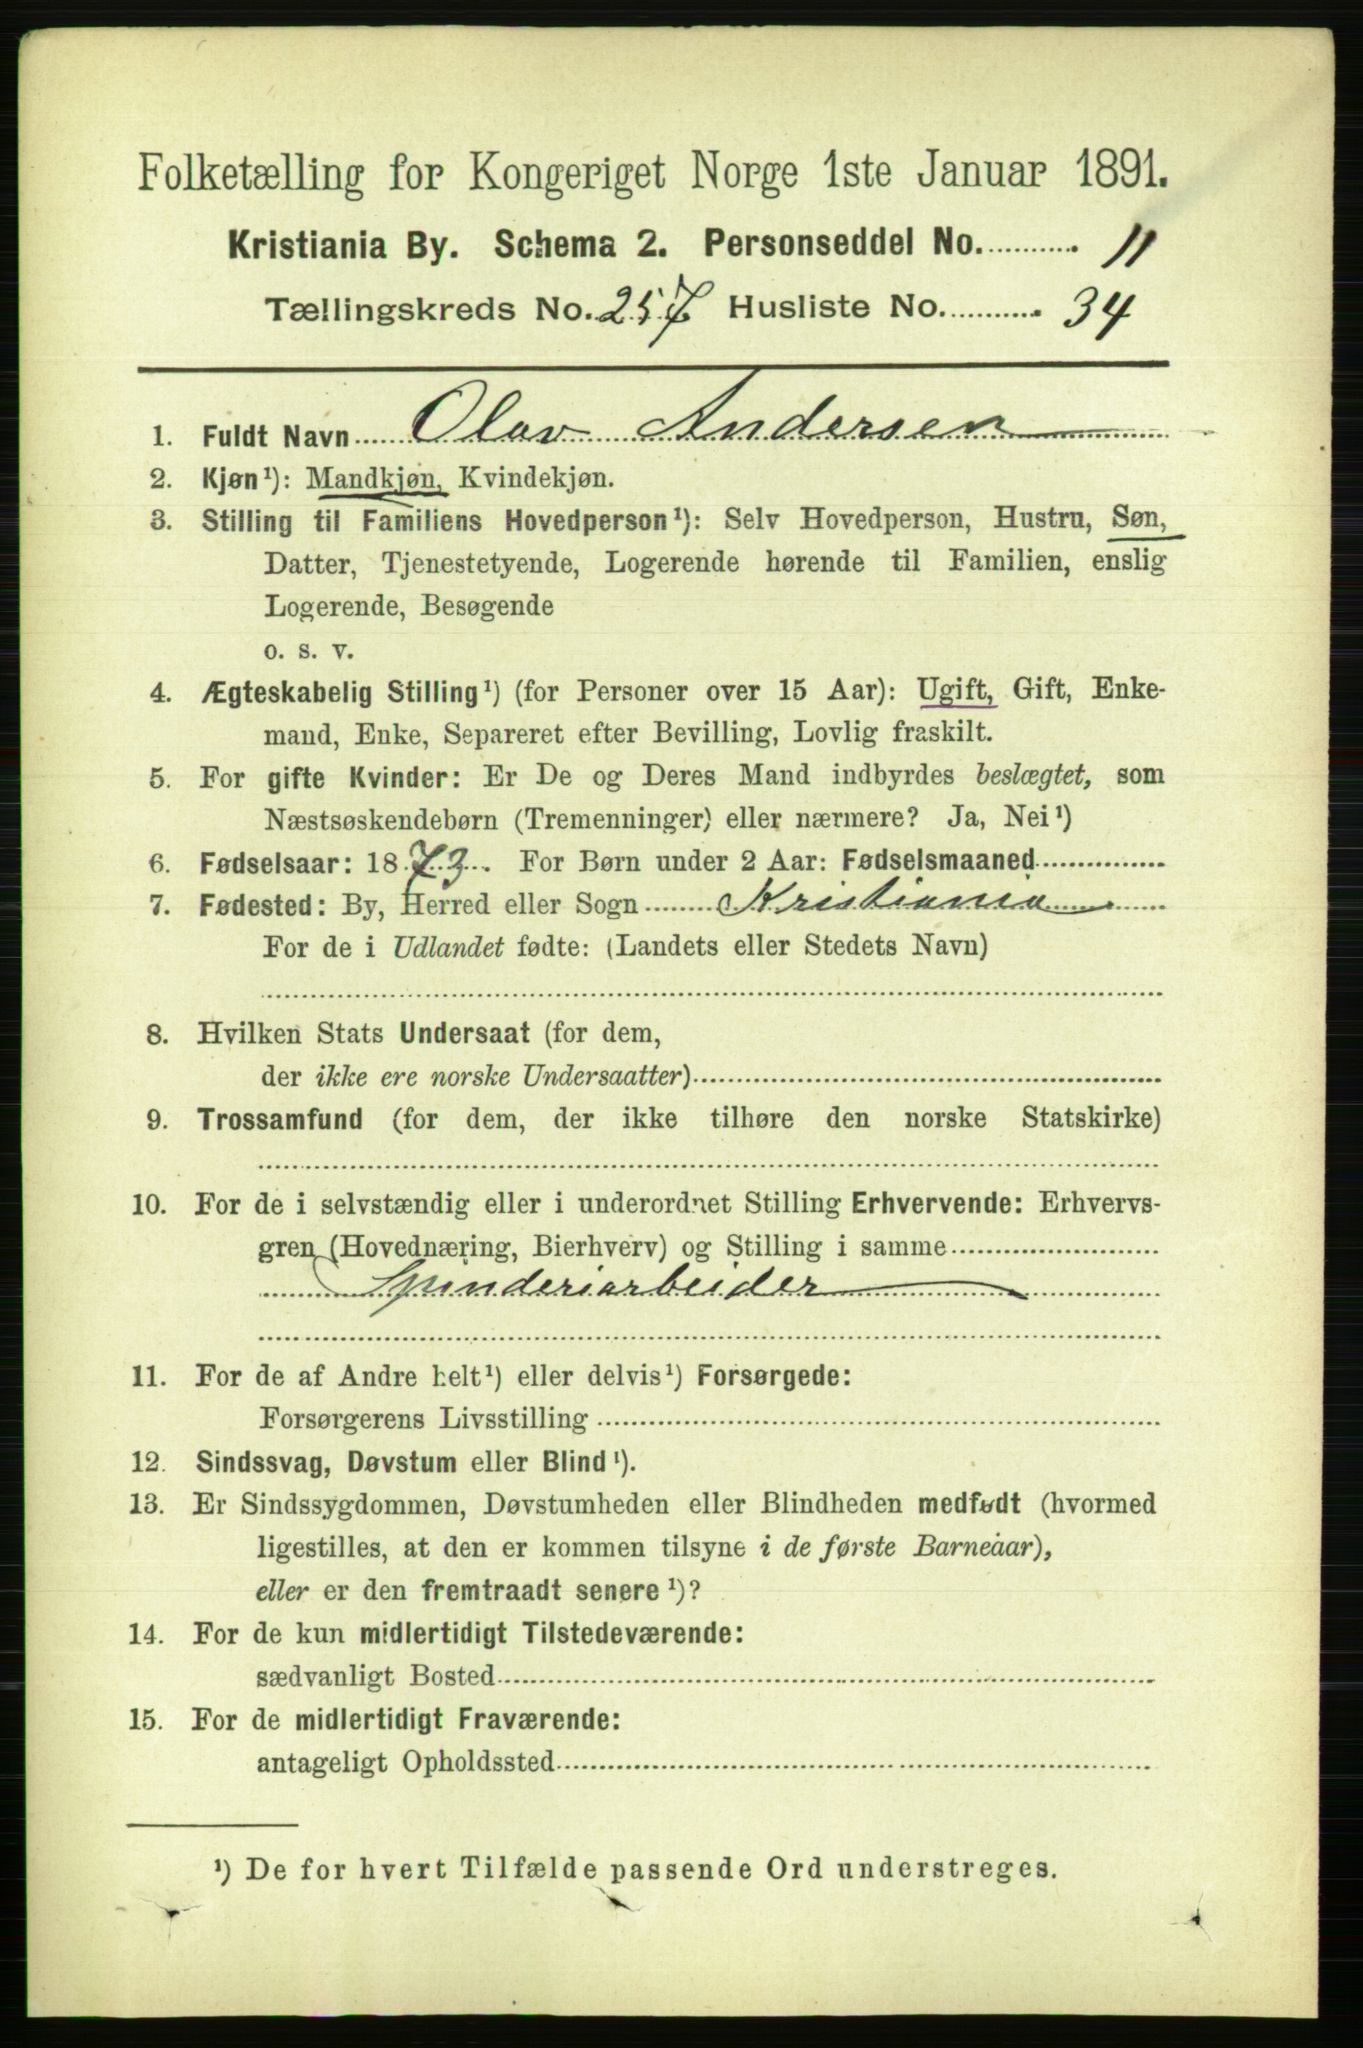 Folketælling for Kongeriget Norge 1ste Januar 1891.
Kristiania By. Schema 2. Personseddel No. 11
Tællingskreds No. 257 Husliste No. 34
1. Fuldt Navn Olav Andersen
2. Kjøn¹): Mandkjøn, Kvindekjøn.
3. Stilling til Familiens Hovedperson¹): Selv Hovedperson, Hustru, Søn,
Datter, Tjenestetyende, Logerende hørende til Familien, enslig
Logerende, Besøgende
o. s. v.
4. Ægteskabelig Stilling¹) (for Personer over 15 Aar): Ugift, Gift, Enke-
mand, Enke, Separeret efter Bevilling, Lovlig fraskilt.
5. For gifte Kvinder: Er De og Deres Mand indbyrdes beslægtet, som
Næstsøskendebørn (Tremenninger) eller nærmere? Ja, Nei¹)
6. Fødselsaar: 1873. For Børn under 2 Aar: Fødselsmaaned
7. Fødested: By, Herred eller Sogn Kristiania
For de i Udlandet fødte: (Landets eller Stedets Navn)
8. Hvilken Stats Undersaat (for dem,
der ikke ere norske Undersaatter)
9. Trossamfund (for dem, der ikke tilhøre den norske Statskirke)
10. For de i selvstændig eller i underordnet Stilling Erhvervende: Erhvervs-
gren (Hovednæring, Bierhverv) og Stilling i samme
Spinderiarbeider
11. For de af Andre helt¹) eller delvis¹) Forsørgede:
Forsørgerens Livsstilling
12. Sindssvag, Døvstum eller Blind¹).
13. Er Sindssygdommen, Døvstumheden eller Blindheden medfødt (hvormed
ligestilles, at den er kommen tilsyne i de første Barneaar),
eller er den fremtraadt senere¹)?
14. For de kun midlertidigt Tilstedeværende:
sædvanligt Bosted
15. For de midlertidigt Fraværende:
antageligt Opholdssted
¹) De for hvert Tilfælde passende Ord understreges.